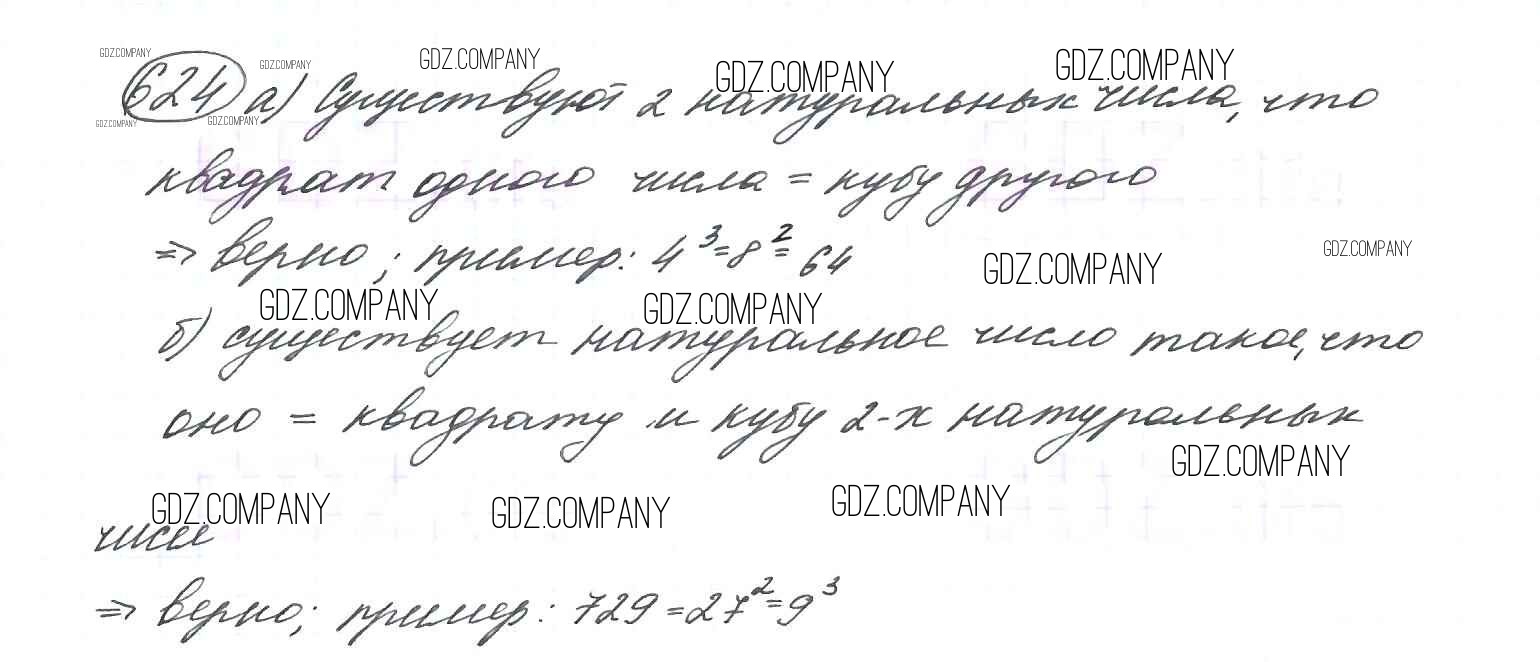 GDZ.COMPANY GDZ.COMPANY GDZ.COMPANY GDZ.COMPANY GDZ.COMPANY
624 а) Существуют 2 натуральных числа, что
GDZ.COMPANY GDZ.COMPANY
квадрат одного числа = кубу другого
=> верно; пример: 4³=8²=64
GDZ.COMPANY GDZ.COMPANY
GDZ.COMPANY GDZ.COMPANY
б) существует натуральное число такое, что
оно = квадрату и кубу 2-х натуральных
GDZ.COMPANY
GDZ.COMPANY GDZ.COMPANY GDZ.COMPANY
чисел
=> верно; пример: 729=27²=9³